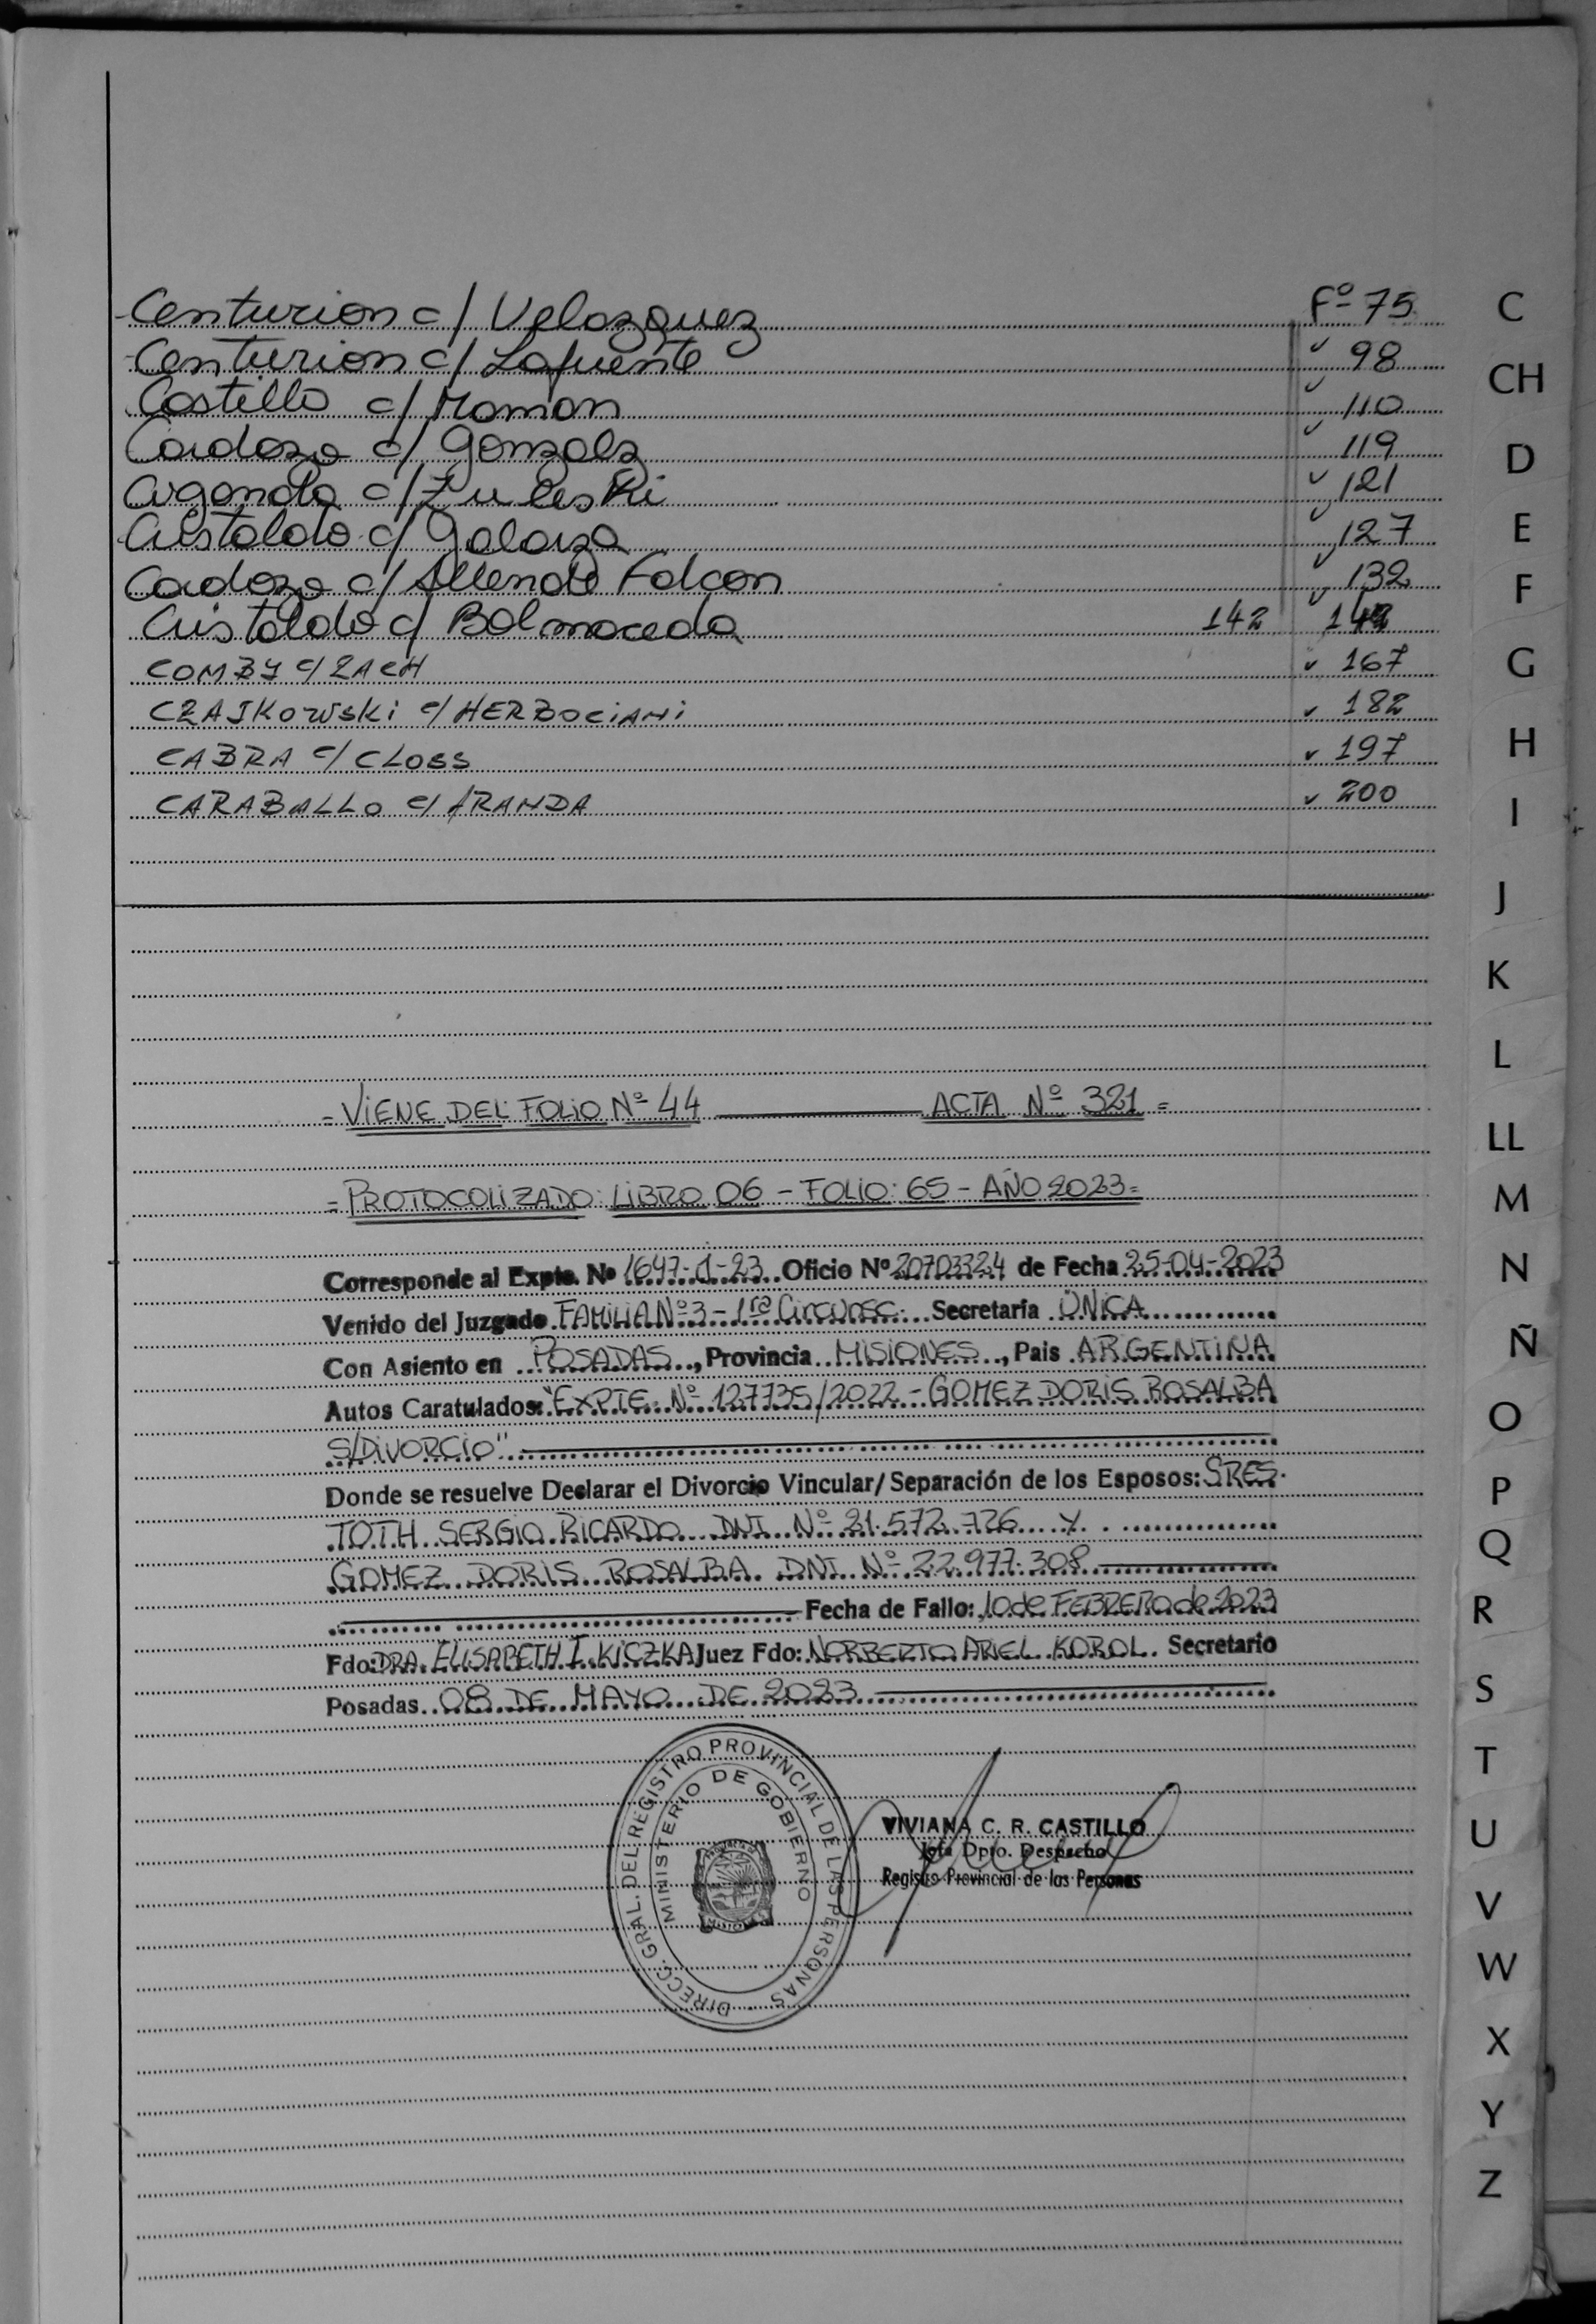 Centurion c/ Velazquez Fº 75
Centurion c/ Lafuente 98
Castillo c/ Maman 110
Cardozo c/ Gonzalz 119
c/ Zuleski 121
Cristaldo c/ Galarza 127
Cardozo c/ Allende Falcon 132
Cristaldo c/ Balmaceda 142 142
COMBY c/ ZACH 167
CZAJKOWSKI c/ HERBOCIANI 182
CABRA c/ CLOSS 197
CARABALLO c/ ARANDA 200
= VIENE DEL FOLIO Nº 44 ACTA Nº 321 =
= PROTOCOLIZADO: LIBRO 06 - FOLIO: 65 - AÑO 2023 =
Corresponde al Expte. Nº 1647-J-23 Oficio Nº 20703324 de Fecha 25-04-2023
Venido del Juzgado FAMILIA Nº 3 - 1ra Circunsc. Secretaría ÚNICA
Con Asiento en POSADAS, Provincia MISIONES, Pais ARGENTINA
Autos Caratulados: "EXPTE. Nº 127735/2022 - GOMEZ DORIS ROSALBA
S/DIVORCIO"
Donde se resuelve Declarar el Divorcio Vincular/Separación de los Esposos: SRES.
TOTH SERGIO RICARDO DNI Nº 21.572.726 Y
GOMEZ DORIS ROSALBA DNI Nº 22.977.308
Fecha de Fallo: 10 de FEBRERO de 2023
Fdo: DRA. ELISABETH I. KICZKA Juez Fdo: NORBERTO ARIEL KOROL Secretario
Posadas 08 DE MAYO DE 2023
DIRECC. GRAL. DEL REGISTRO PROVINCIAL DE LAS PERSONAS
MINISTERIO DE GOBIERNO
VIVIANA C. R. CASTILLO
Jefa Dpto. Despacho
Registro Provincial de las Personas
C
CH
D
E
F
G
H
I
J
K
L
LL
M
N
Ñ
O
P
Q
R
S
T
U
V
W
X
Y
Z